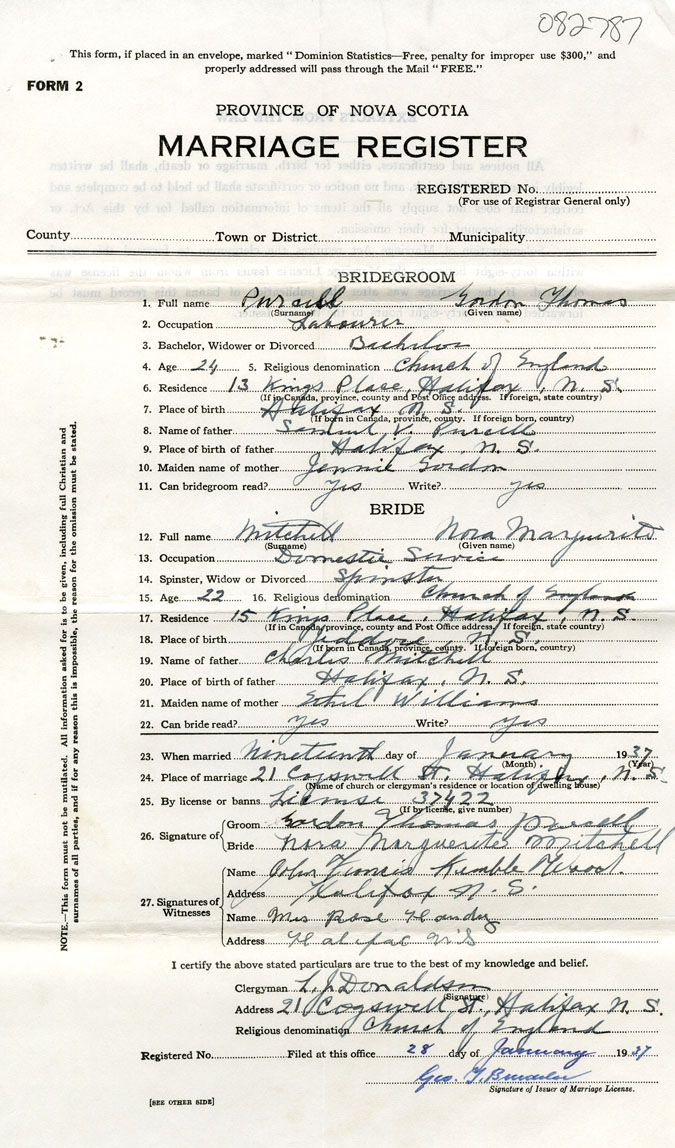 082787
This form, if placed in an envelope, marked "Dominion Statistics—Free, penalty for improper use $300," and
properly addressed will pass through the Mail "FREE."
FORM 2
PROVINCE OF NOVA SCOTIA
MARRIAGE REGISTER
REGISTERED No.
(For use of Registrar General only)
County Town or District Municipality
BRIDEGROOM
1. Full name Purcell Gordon Thomas
(Surname) (Given name)
2. Occupation Labourer
3. Bachelor, Widower or Divorced Bachelor
4. Age 24 5. Religious denomination Church of England
6. Residence 13 Kings Place, Halifax, N. S.
(If in Canada, province, county and Post Office address. If foreign, state country)
7. Place of birth Halifax N. S.
(If born in Canada, province, county. If foreign born, country)
8. Name of father Samuel V. Purcell
9. Place of birth of father Halifax, N. S.
10. Maiden name of mother Jennie Gordon
11. Can bridegroom read? yes Write? yes
BRIDE
12. Full name Mitchell Nora Marguerite
(Surname) (Given name)
13. Occupation Domestic Service
14. Spinster, Widow or Divorced Spinster
15. Age 22 16. Religious denomination Church of England
17. Residence 15 Kings Place, Halifax, N. S.
(If in Canada, province, county and Post Office address. If foreign, state country)
18. Place of birth Jeddore, N. S.
(If born in Canada, province, county. If foreign born, country)
19. Name of father Charles Mitchell
20. Place of birth of father Halifax, N. S.
21. Maiden name of mother Ethel Williams
22. Can bride read? yes Write? yes
23. When married Nineteenth day of January 1937
(Month) (Year)
24. Place of marriage 21 Cogswell St. Halifax, N. S.
(Name of church or clergyman's residence or location of dwelling house)
25. By license or banns License 37422
(If by license, give number)
26. Signature of
Groom Gordon Thomas Purcell
Bride Nora Marguerite Mitchell
27. Signatures of Witnesses
Name John Francis Kimble Wood.
Address Halifax N. S.
Name Mrs Rose Handy
Address Halifax N.S
I certify the above stated particulars are true to the best of my knowledge and belief.
Clergyman L. J. Donaldson
(Signature)
Address 21 Cogswell St., Halifax N. S.
Religious denomination Church of England
Registered No. Filed at this office 28 day of January 1937
Geo.
Signature of Issuer of Marriage License.
[SEE OTHER SIDE]
NOTE.—This form must not be mutilated. All information asked for is to be given, including full Christian and
surnames of all parties, and if for any reason this is impossible, the reason for the omission must be stated.